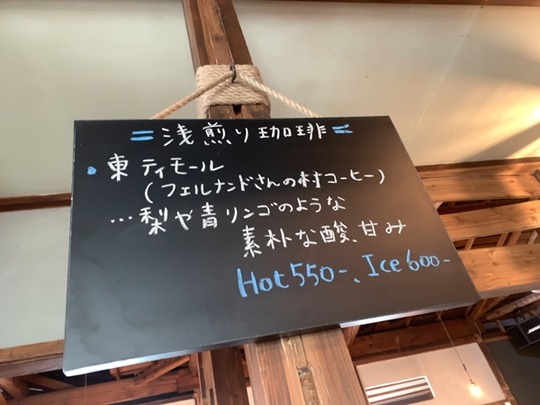 = 浅煎り珈琲 =
• 東ティモール
(フェルナンドさんの村コーヒー)
…梨や青リンゴのような
素朴な酸、甘み
Hot 550-、Ice 600-